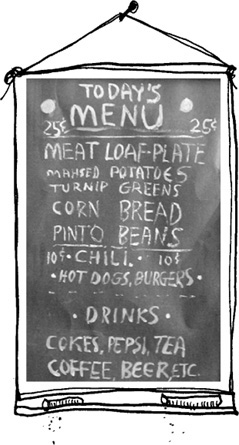 TODAY'S
MENU
25¢ 25¢
MEAT LOAF-PLATE
MAHSED POTATOES
TURNIP GREENS
CORN BREAD
PINTO BEANS
10¢ · CHILI. · 10¢
· HOT DOGS, BURGERS ·
· DRINKS ·
COKES, PEPSI, TEA
COFFEE, BEER, ETC.